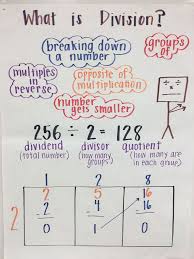 What is Division?
breaking down
a number
groups
of
multiples
in
reverse
opposite of
multiplication
number
gets smaller
256 ÷ 2 = 128
dividend divisor quotient
(total number) (how many groups) (how many are in each group)
1 2 8
2 5 16
2 2 4 16
0 1 0